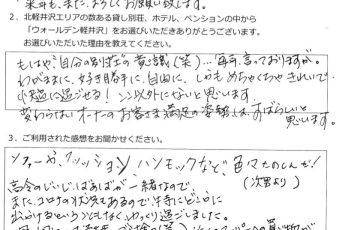 来年も、また、よろしくお願い致します。
2. 北軽井沢エリアの数ある貸し別荘、ホテル、ペンションの中から
「ウォールデン軽井沢」をお選びいただきありがとうございます。
お選びいただいた理由を教えてください。
もはや"自分の別荘"の意識(笑)…毎年言っておりますが。
わがままに、好き勝手に、自由に、しかもめちゃくちゃきれいで
快適に過ごせる！ ここ以外にないと思います。
変わらないオーナーのお客さま満足の姿勢も、すばらしいと
思います。
3. ご利用された感想をお聞かせください。
ソファーや、クッション ハンモックなど、色々たのしんだ！
(次男より)
高令のじいじばあばが一緒なので、
また、コロナの状況もあるので、
出かけるということもなくゆっくり過ごしました。